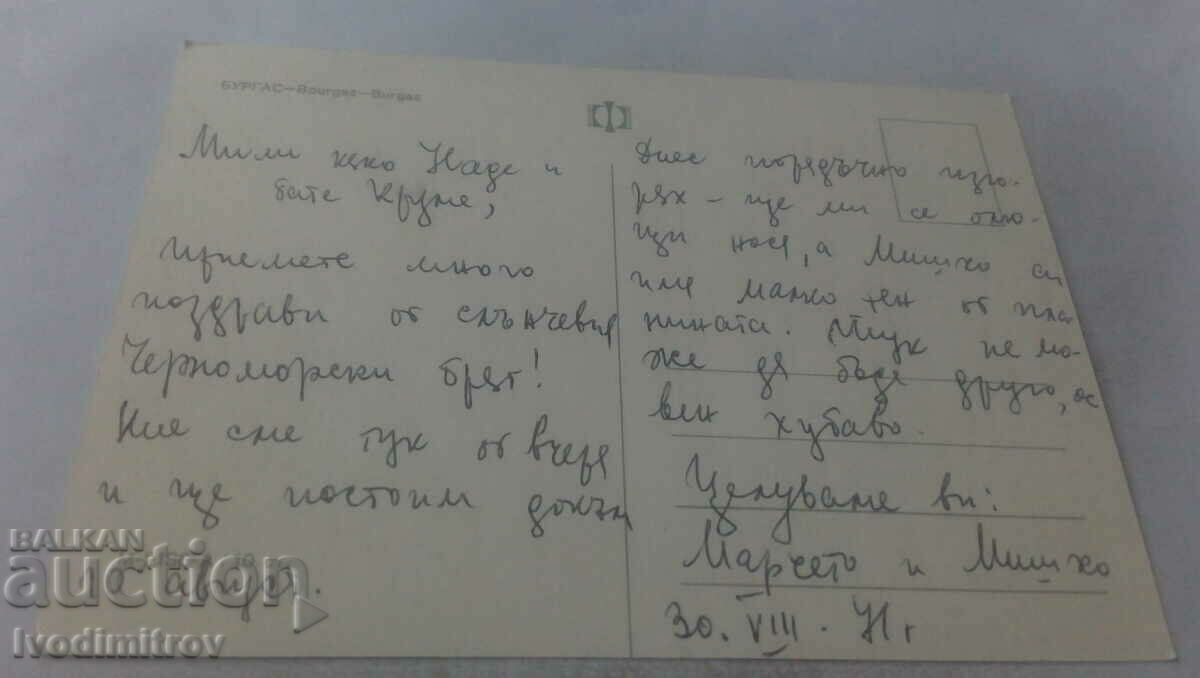 БУРГАС—Bourgas—Burgas
Мили како Наде и
бате Круме,
приемете много
поздрави от слънчевия
Черноморски бряг!
Ние сме тук от вчера
и ще постоим докъм
10 август.
Днес порядъчно изго-
рях – ще ми се олю-
щи носа, а Мишко си
име малко тен от пла-
нината. Тук не мо-
же да бъде друго, ос
вен хубаво.
Целуваме ви:
Марчето и Мишко
30. VIII. 71 г
BALKAN
auction
Ivodimitrov